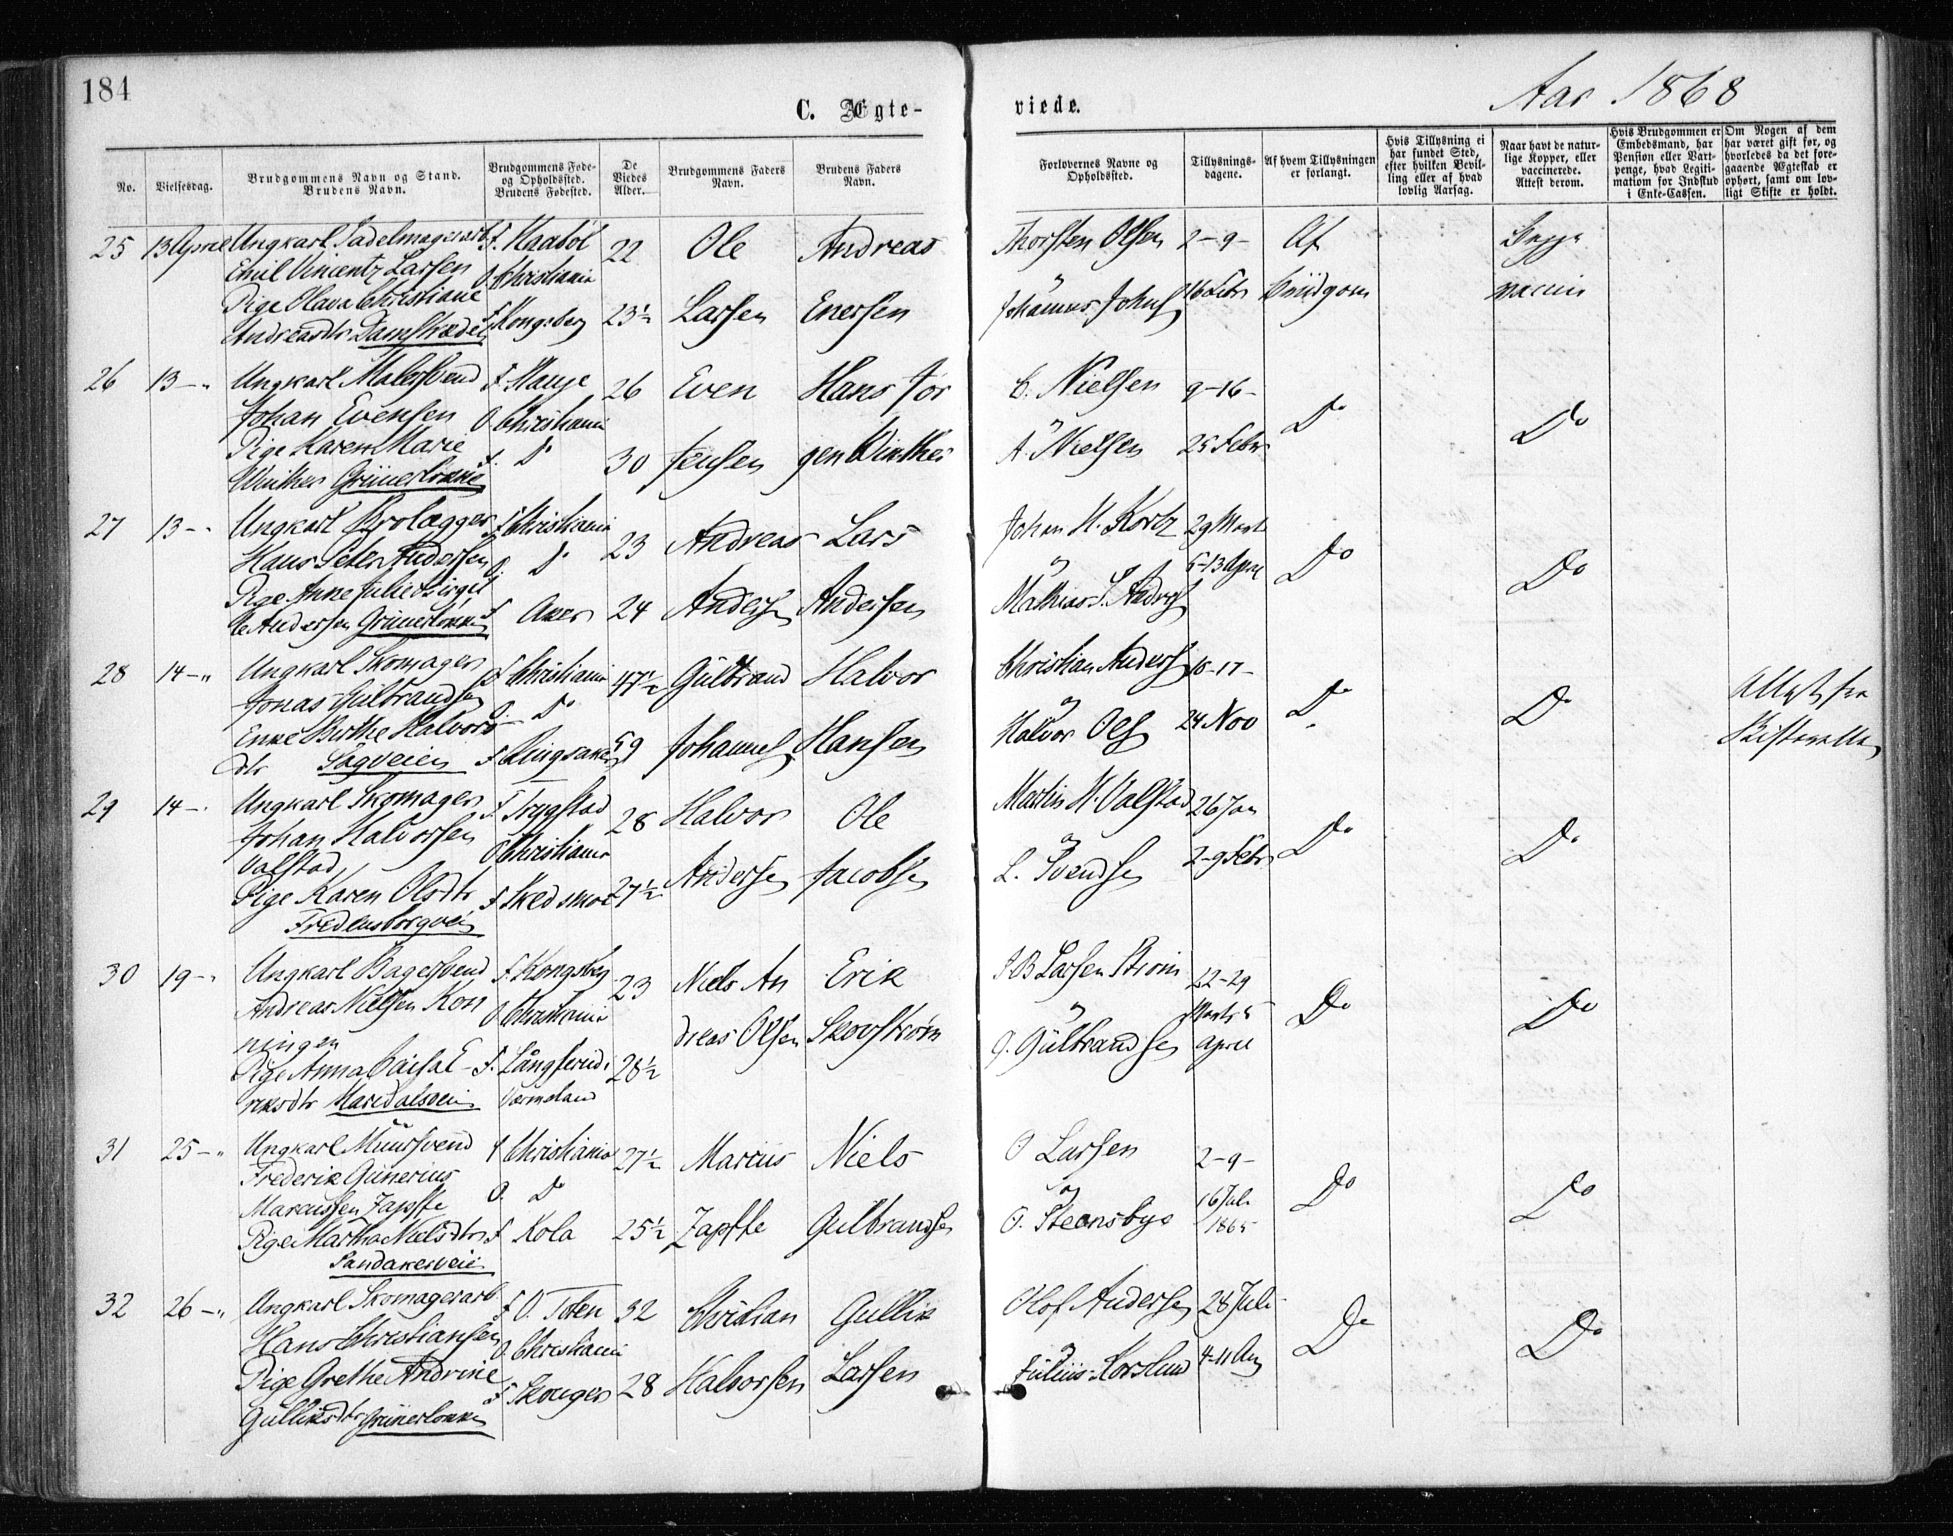 184
C. Ægte-
viede.
Aar 1868
No.
Vielsesdag.
Brudgommens Navn og Stand.
Brudens Navn.
Brudgommens Føde-
og Opholdssted.
Brudens Fødested.
De
Viedes
Alder.
Brudgommens Faders
Navn.
Brudens Faders
Navn.
Forlovernes Navne og
Opholdssted.
Tillysnings-
dagene.
Af hvem Tillysningen
er forlangt.
Hvis Tillysning ei
har fundet Sted,
efter hvilken Bevil-
ling eller af hvad
lovlig Aarsag.
Naar havt de natur-
lige Kopper, eller
vaccinerede.
Attest derom.
Hvis Brudgommen er
Embedsmand, har
Pension eller Vart-
penge, hvad Legiti-
mation for Indskud
i Enke-Cassen.
Om Nogen af dem
har været gift før, og
hvorledes da det fore-
gaaende Ægteskab er
ophørt, samt om lov-
ligt Skifte er holdt.
25 13 April Ungkarl Sadelmagerarb F. 22 Ole Andreas Thorsten Olsen 2-9- Af Begge
Emil Vincentz Larsen O Christiania
Pige Olava Christiane F Kongsberg 23½ Larsen Enersen 16 Febr Brudgom vaccin
Andreasdtr Damstrædet
26 13-" Ungkarl Malersvend F. 26 Even Hans Jør C. Nielsen 9-16-
Johan Evensen O Christiania Do Do
Pige Karen Marie F. Do 30 Jensen gen Winther A. Nielsen 25 Febr
Winther Grünerløkken
27 13-" Ungkarl Brolægger F Christiania 23 Andreas Lars Johan H. 29 Marts
Hans Peter Andersen O. Do 5-13 April Do Do
Pige Anne Julie Birgit F Aker 24 Andersen Andersen Mathias
te Andersen Grünerløkken
28 14-" Ungkarl Skomager F Christiania 47½ Gulbrand Halvor Christian Anders 10-17- Attest fra
Jonas Gulbrandsen O. Do Do Do Skifteretten
Enke Birthe Halvors F Ringsaker 59 Johannes Hansen Halvor Ols 24 Nov
dtr Sagveien
29 14-" Ungkarl Skomager F. Trygstad 28 Halvor Ole Martin H. Valstad 26 Jan
Johan Halvorsen O Christiania Do Do
Valstad
Pige Karen Olsdtr F Skedsmoe 27½ Andersen Jacobsen L. Svendsen 2-9 Febr
Fredensborgvei
30 19-" Ungkarl Bagersvend F. Kongsberg 23 Niels An Erik Larsen Strøm 22-29
Andreas Nielsen Kon O Christiania Marts 5 Do Do
ningen dreas Olsen Skovstrøm Gulbrandsen April
Pige Anna Caisa E F. Långserud i 28½
riksdtr Maridalsvei Värmeland
31 25-" Ungkarl Muursvend F Christiania 27½ Marcus Niels O Larsen 2-9-
Frederik Gunerius
Marcussen Zapffe O. Do 16 Juli Do Do
Pige Martha Nielsdtr F Kola 25½ Zapffe Gulbrandsen O. Steensbye 1865
Sandakerveien
32 26-" Ungkarl Skomagerarb F. O. Toten 32 Christian Gullik Olof Andersen 28 Juli
Hans Christiansen O. Christiania Do Do
Pige Grethe Andrine F Skouger 28 Halvorsen Larsen Julius Korslund 4-11 Aug
Gulliksdtr Grünerløkken